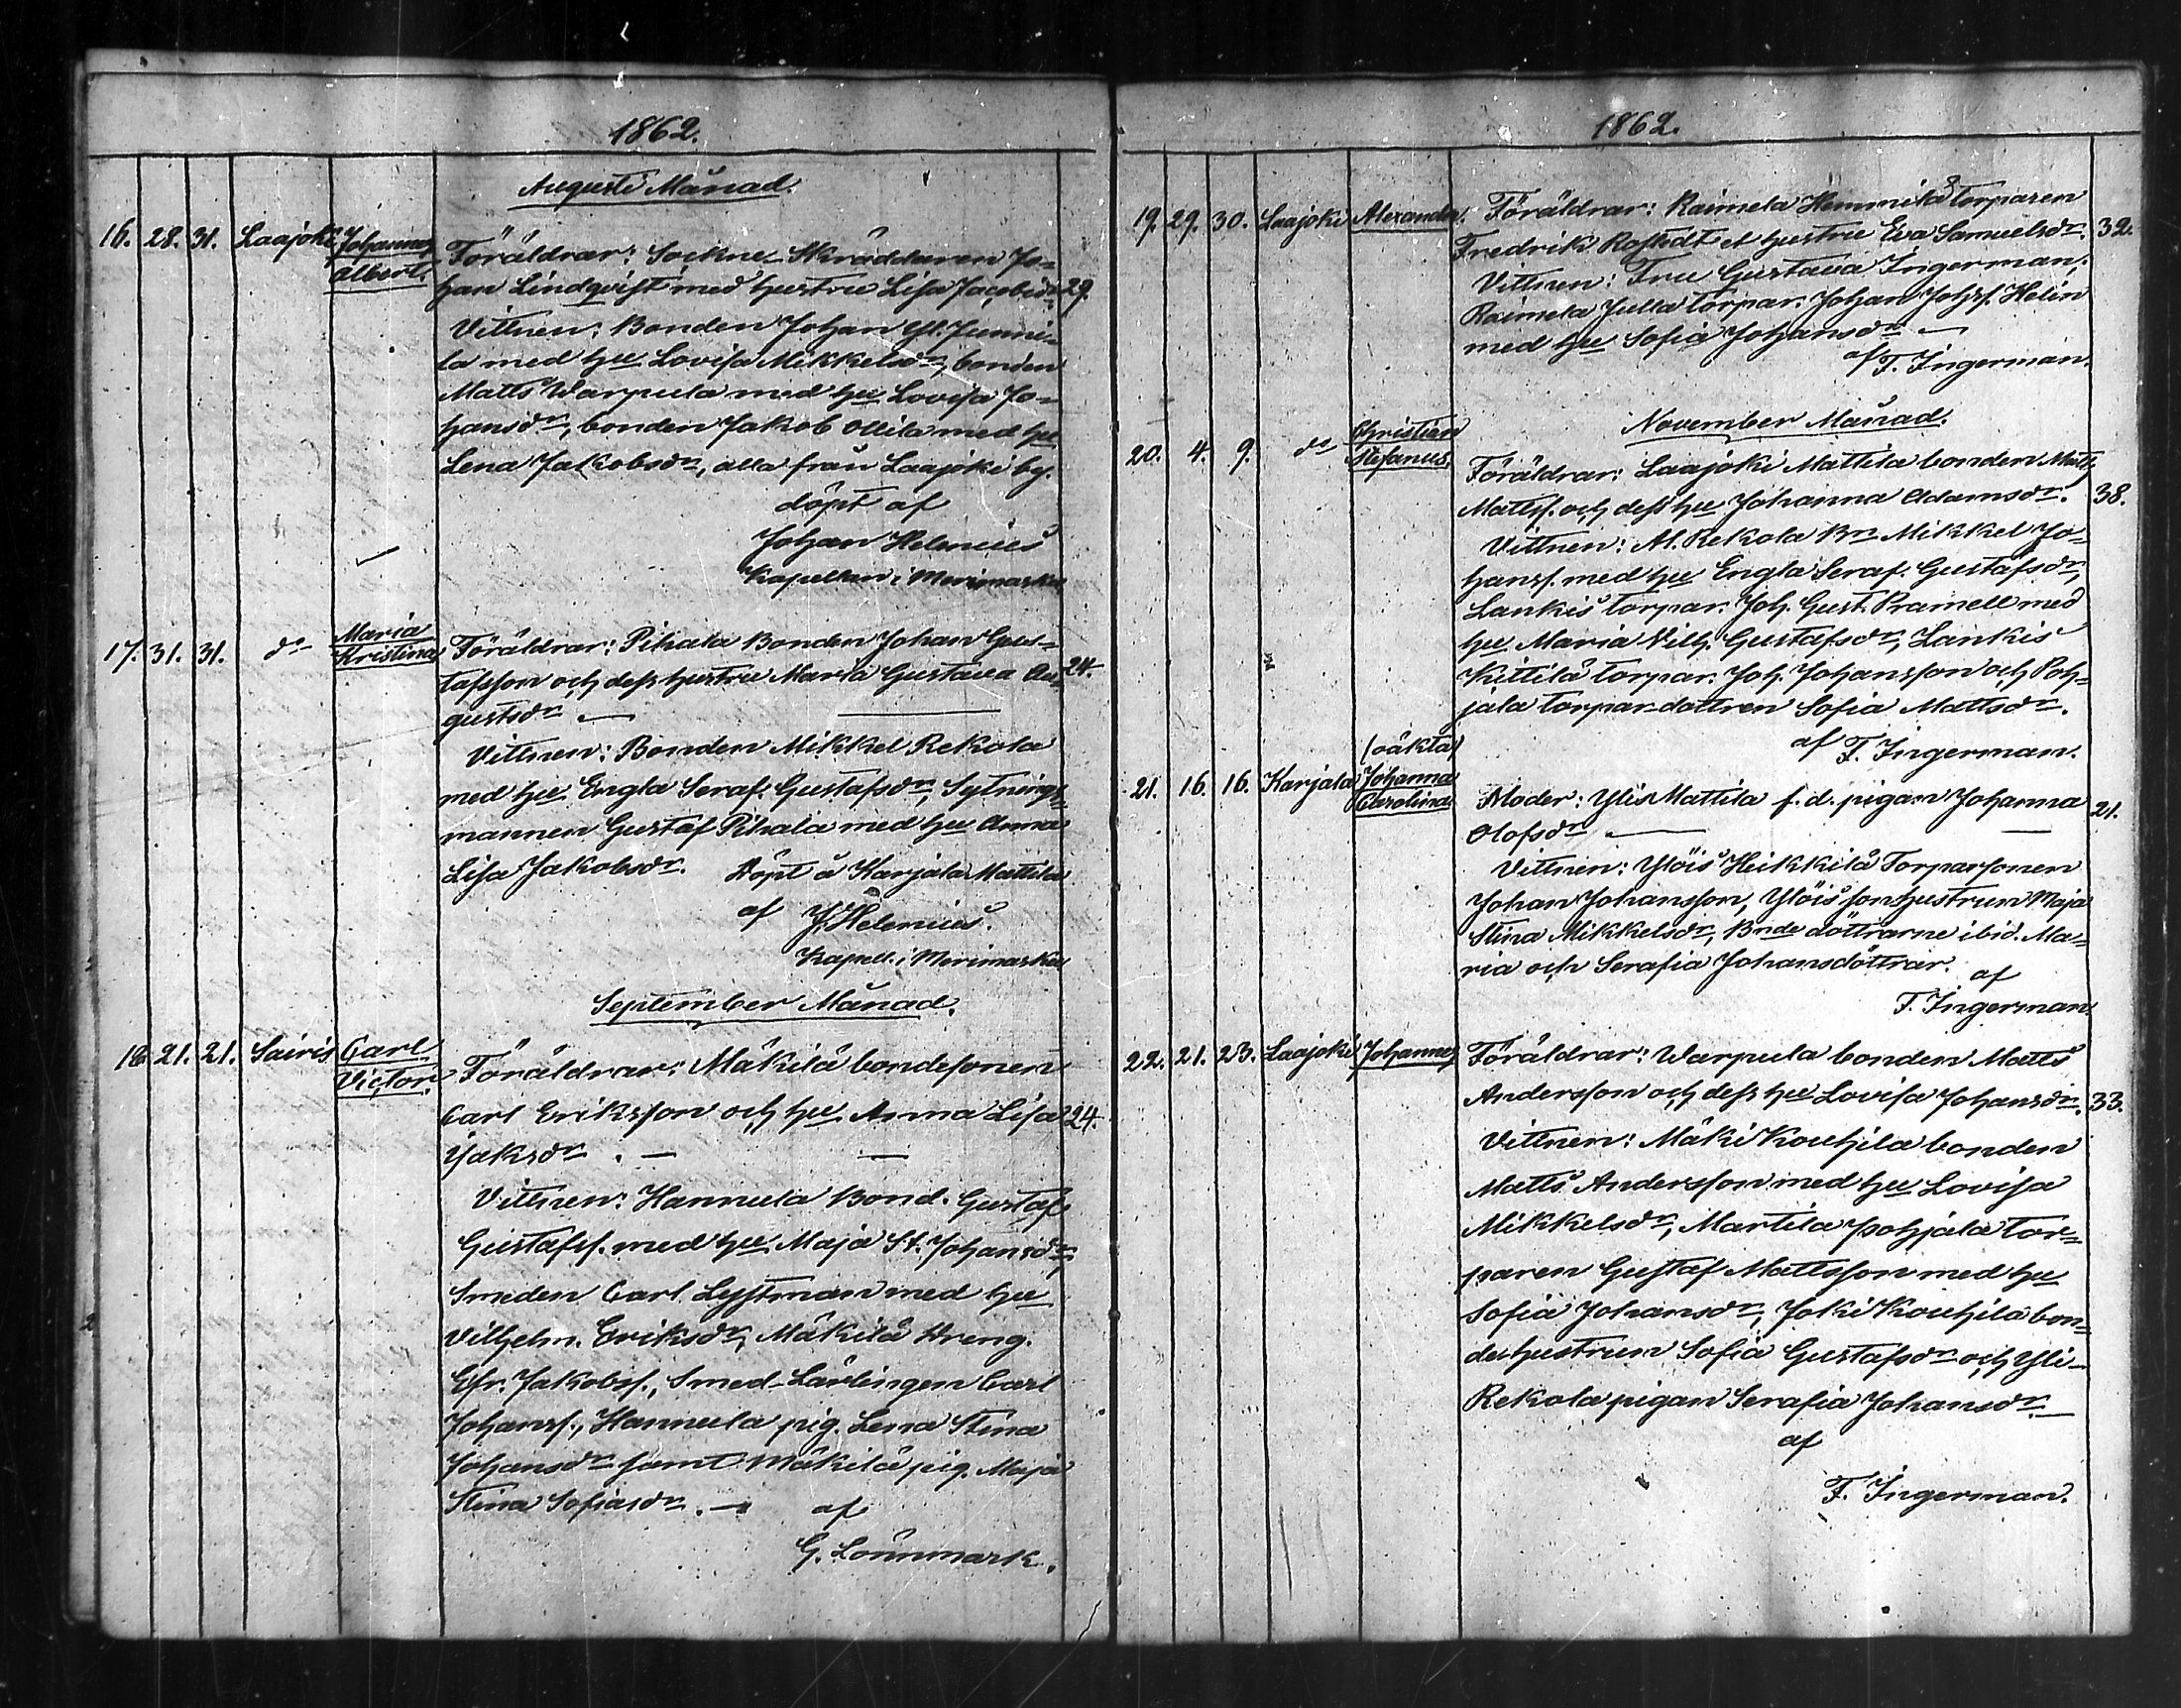 1862.
Augusti Månad.
16. 28. 31. Laajoki Johannes Albert.
Föräldrar: Sockne Skräddaren Jo-
han Lindqvist med hustru Lisa Jacobsdr 29.
Vittnen: Bonden Johan Yl. Junni-
la med hu Lovisa Mikkelsdr, bonden
Matts Warpula med hu Lovisa Jo-
hansdr, bonden Jakob Ollila med hu
Lena Jakobsdr, alla från Laajoki by.
döpt af
Johan Helenius
Kapellan i Merimasku
17. 31. 31. do Maria Kristina
Föräldrar: Pihala Bonden Johan Gus-
tafsson och dess hustru Maria Gustava Au- 24.
gustsdr
Vittnen: Bonden Mikkel Rekola
med hu Engla Seraf. Gustafsdr, Sytnings-
mannen Gustaf Pihala med hu Anna
Lisa Jakobsdr. Döpt å Karjala Mattila
af J. Helenius.
Kapell. i Merimasku
September Månad.
18. 21. 21. Sairis Carl Victor.
Föräldrar: Mäkilä bondesonen
Carl Eriksson och hu Anna Lisa 24.
Jaksdr. —
Vittnen: Hannula Bond. Gustaf
Gustafss. med hu Maja St. Johansdr,
Smeden Carl Lystman med hu
Vilhelm. Eriksdr, Mäkilä Dreng.
Efr. Jakobss., Smed-Lärlingen Carl
Johanss., Hannula pig. Lena Stina
Johansdr samt Mäkilä pig. Maja
Stina Sofiasdr. — af
G. Lönnmark.
1862.
19. 29. 30. Laajoki Alexander.
Föräldrar: Raimela Hemmilä torparen
Fredrik Rostedt et hustru Eva Samuelsdr. 32.
Vittnen: Fru Gustava Ingerman,
Raimela Julla torpar. Johan Johss. Helin
med hu Sofia Johansdr —
af F. Ingerman.
November Månad.
20. 4. 9. do Christian Stefanus.
Föräldrar: Laajoki Mattila bonden Matts
Mattss. och dess hu Johanna Adamsdr. 38.
Vittnen: Al. Rekola Bn Mikkel Jo-
hanss. med hu Engla Seraf. Gustafsdr,
Lankis torpar. Joh. Gust. Pramell med
hu Maria Vilh. Gustafsdr, Lankis
Kittilä torpar. Joh. Johansson och Poh-
jala torpar-dottren Sofia Mattsdr.
af F. Ingerman.
(oäkta)
21. 16. 16. Karjala Johanna Carolina
Moder: Ylis Mattila f. d. pigan Johanna 21.
Olofsdr —
Vittnen: Ylöis Heikkilä Torparsonen
Johan Johansson, Ylöis sonhustrun Maja
Stina Mikkelsdr, Bnde döttrarne ibid. Ma-
ria och Serafia Johansdöttrar. af
F. Ingerman.
22. 21. 23. Laajoki Johannes
Föräldrar: Warpula bonden Matts
Andersson och dess hu Lovisa Johansdr. 33.
Vittnen: Mäki Kouhila bonden
Matts Andersson med hu Lovisa
Mikkelsdr, Martila Pohjala tor-
paren Gustaf Mattsson med hu
Sofia Johansdr, Joki Kouhila bon-
dehustrun Sofia Gustafsdr och Yli-
Rekola pigan Serafia Johansdr. —
af
F. Ingerman.